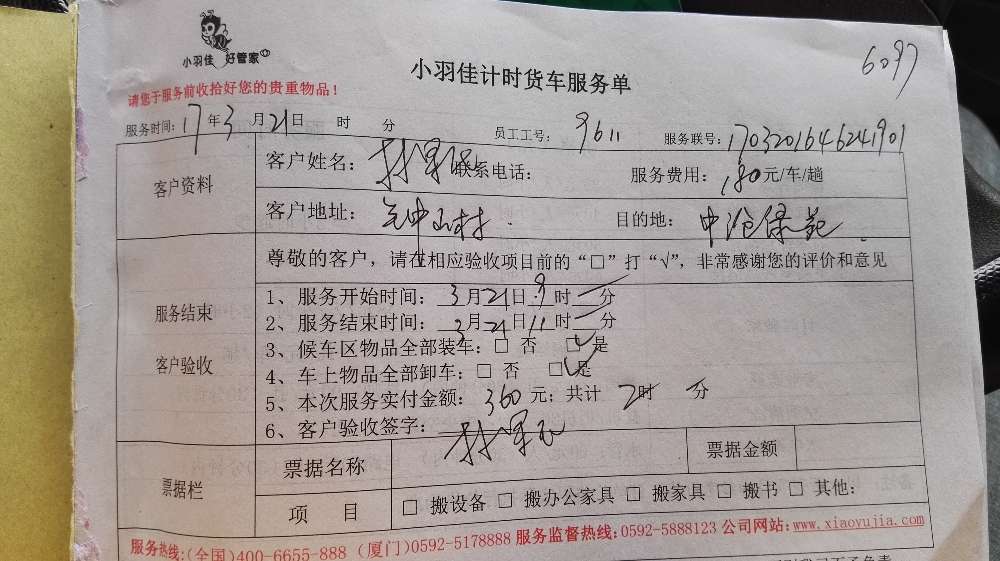 小羽佳 好管家
小羽佳计时货车服务单
6097
请您于服务前收拾好您的贵重物品！
服务时间：17年3月21日 时 分 员工工号：9611 服务联号：1703201646241901
客户资料
客户姓名：林 联系电话： 服务费用：180元/车/趟
客户地址：中山村 目的地：中沧绿苑
服务结束
客户验收
尊敬的客户，请在相应验收项目前的“□”打“√”，非常感谢您的评价和意见
1、服务开始时间：3月21日9时 分
2、服务结束时间：3月21日11时 分
3、候车区物品全部装车：□ 否 □ 是
4、车上物品全部卸车：□ 否 □ 是
5、本次服务实付金额：360元；共计2时 分
6、客户验收签字：林
票据栏
票据名称 票据金额
项 目 □ 搬设备 □ 搬办公家具 □ 搬家具 □ 搬书 □ 其他：
服务热线：(全国)400-6655-888 (厦门)0592-5178888 服务监督热线：0592-5888123 公司网站：www.xiaoyujia.com